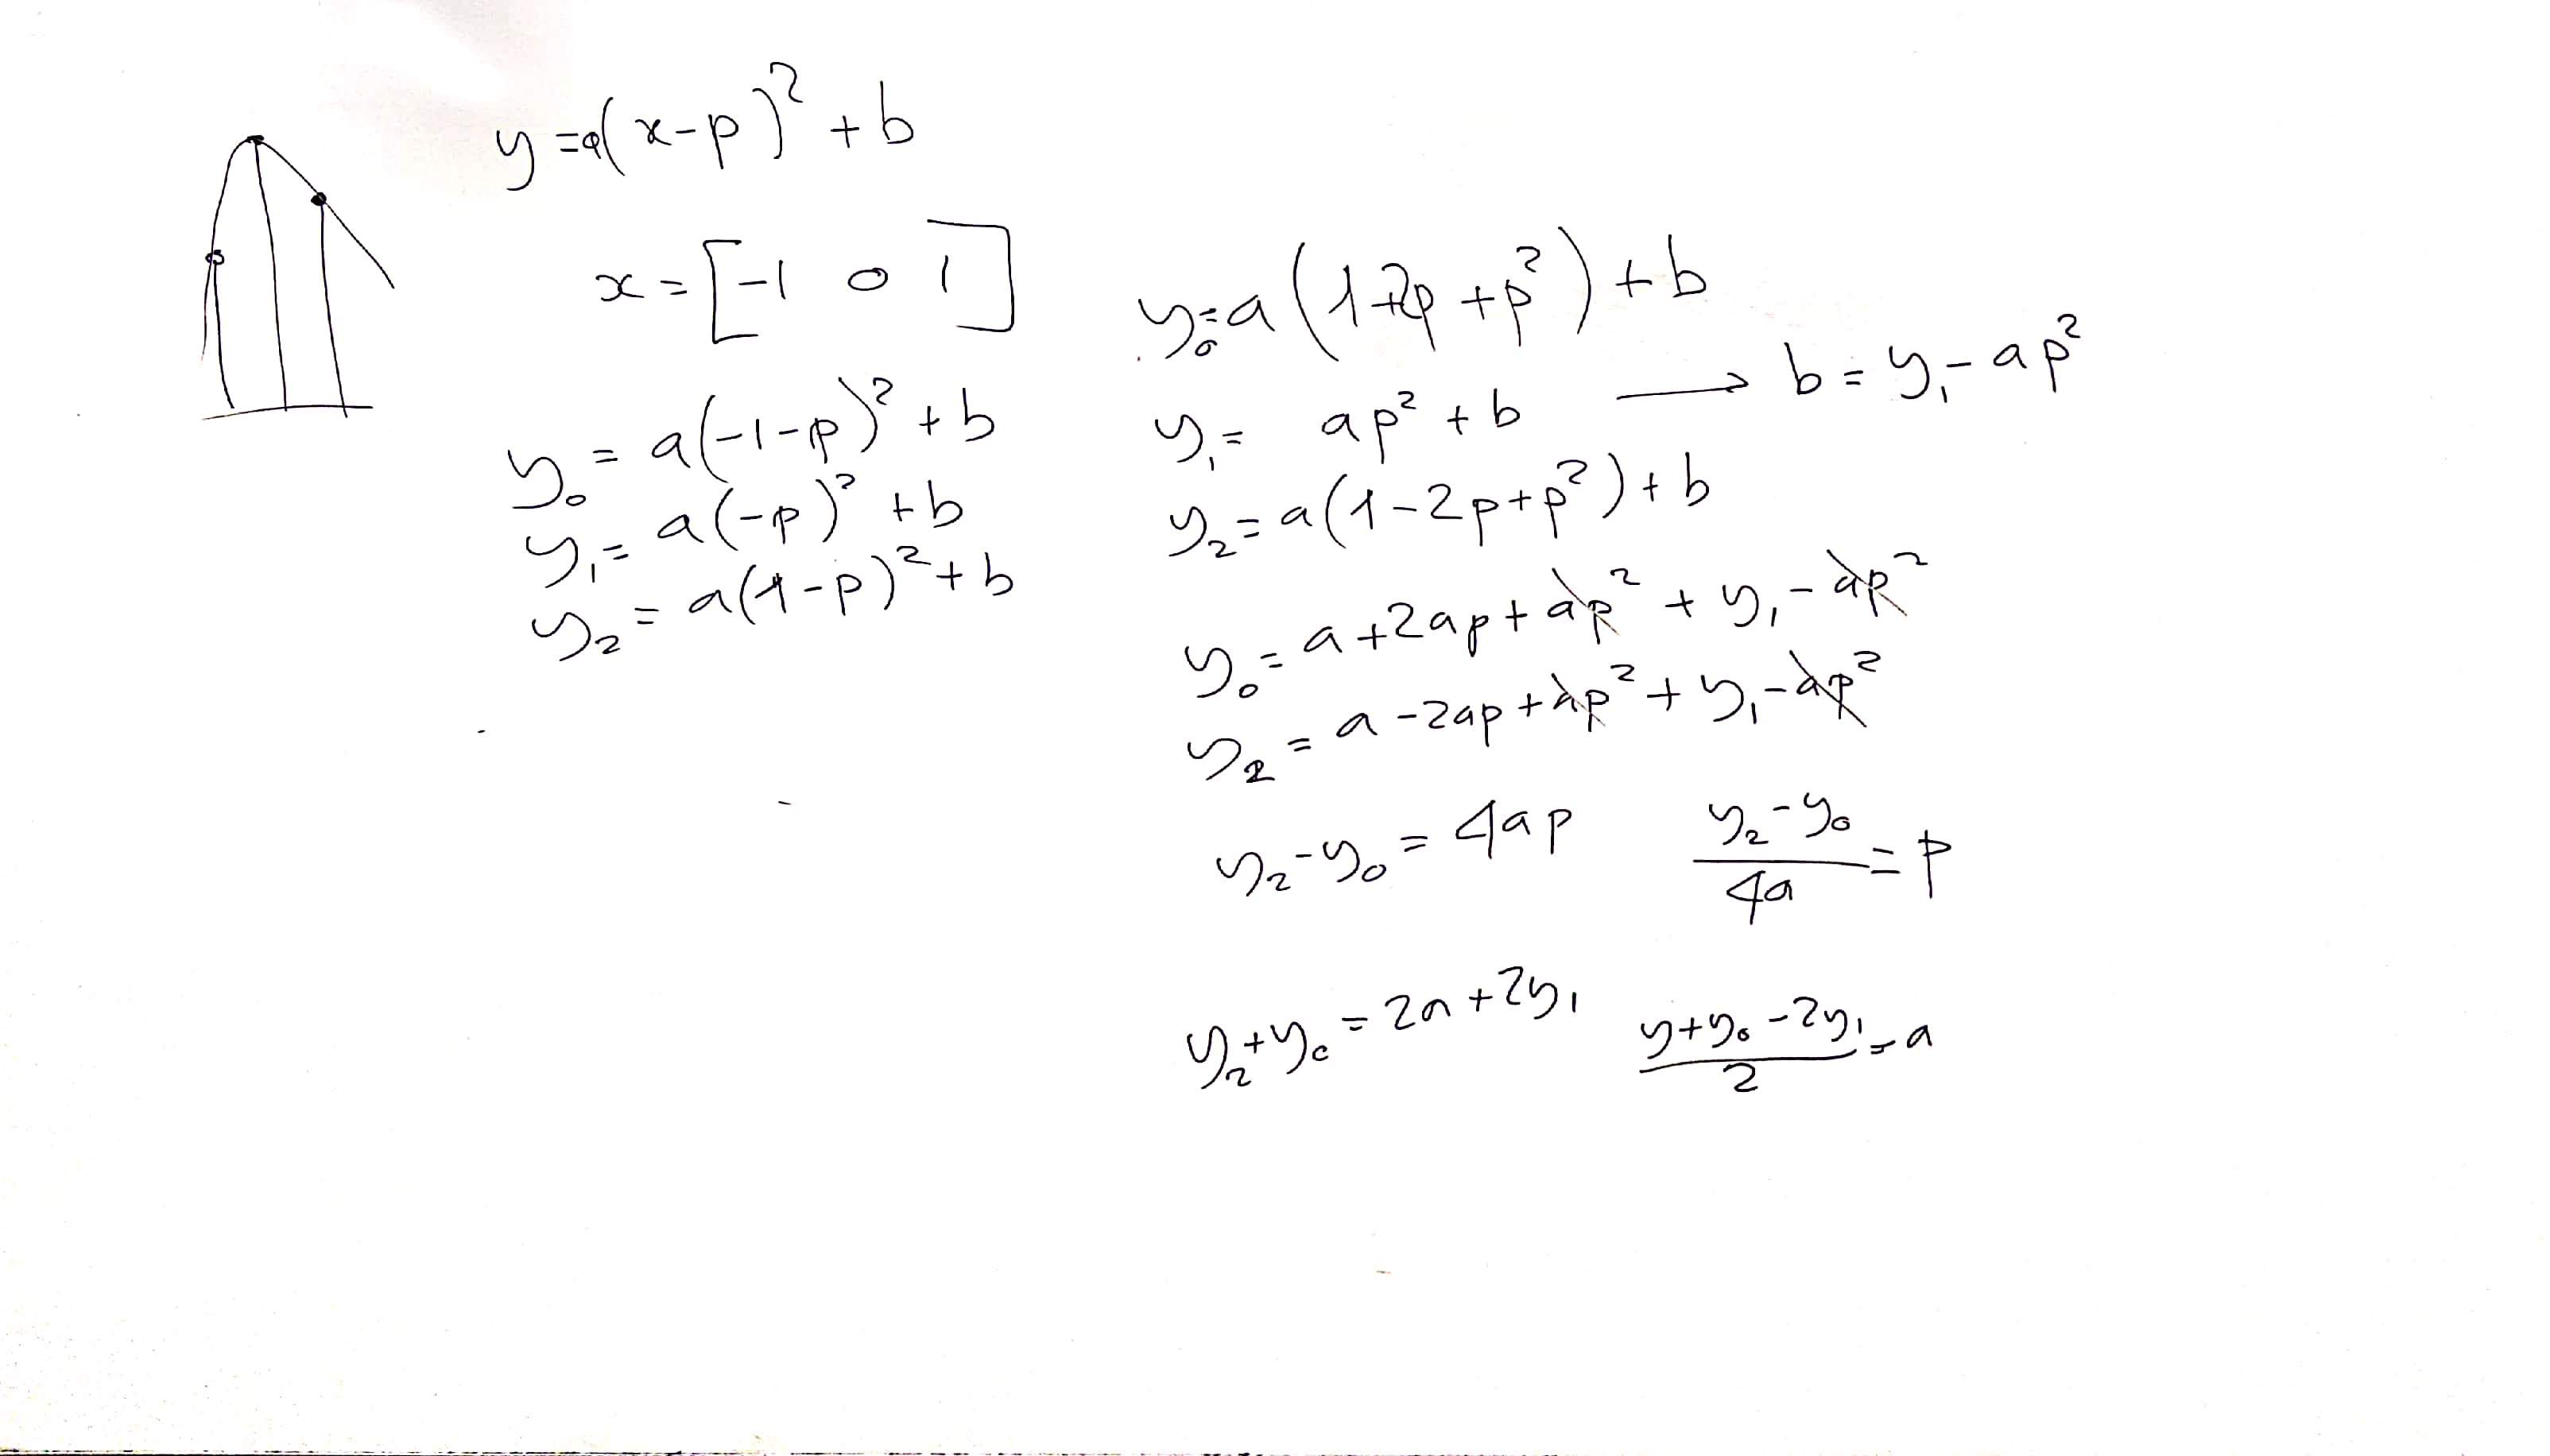 y=a(x-p)²+b
x=[-1 0 1]
y₀=a(-1-p)²+b
y₁=a(-p)²+b
y₂=a(1-p)²+b
y₀=a(1+2p+p²)+b
y₁=ap²+b → b=y₁-ap²
y₂=a(1-2p+p²)+b
y₀=a+2ap+ap²+y₁-ap²
y₂=a-2ap+ap²+y₁-ap²
y₂-y₀=4ap (y₂-y₀)/4a=p
y₂+y₀=2a+2y₁ (y+y₀-2y₁)/2=a